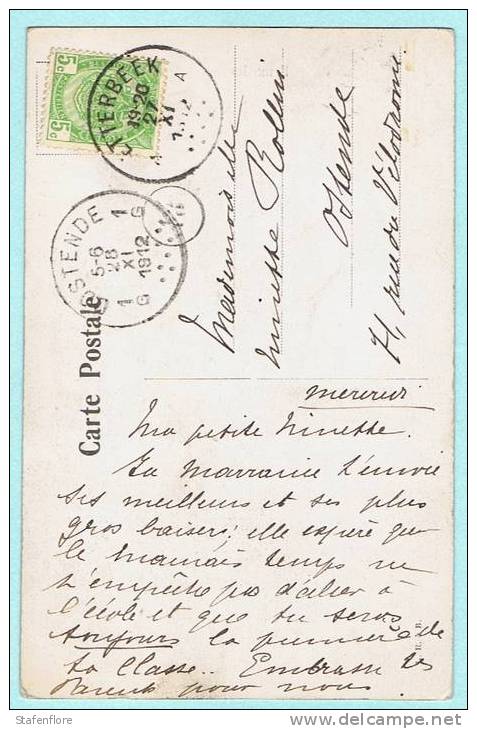 5c 5c
ETTERBEEK
19-20
27
XI
A
OOSTENDE
1 G
5-6
28
XI
1912
1 G
Carte Postale
Mademoiselle
Ninette Rollin
Ostende
71, rue du Vélodrome.
mercredi
Ma petite Ninette.
Ta Marraine t'envoie
ses meilleurs et ses plus
gros baisers; elle espère que
le mauvais temps ne
t'empêche pas d'aller à
l'école et que tu seras
toujours la première de
ta Classe.. Embrasse tes
Parents pour nous.
Stafenflore
http://www.delcampe.net